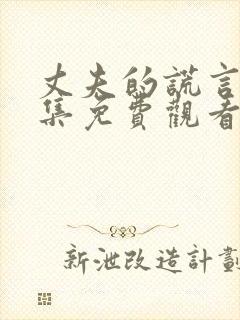 丈夫的謊言
集免費觀看
新泄改造計劃